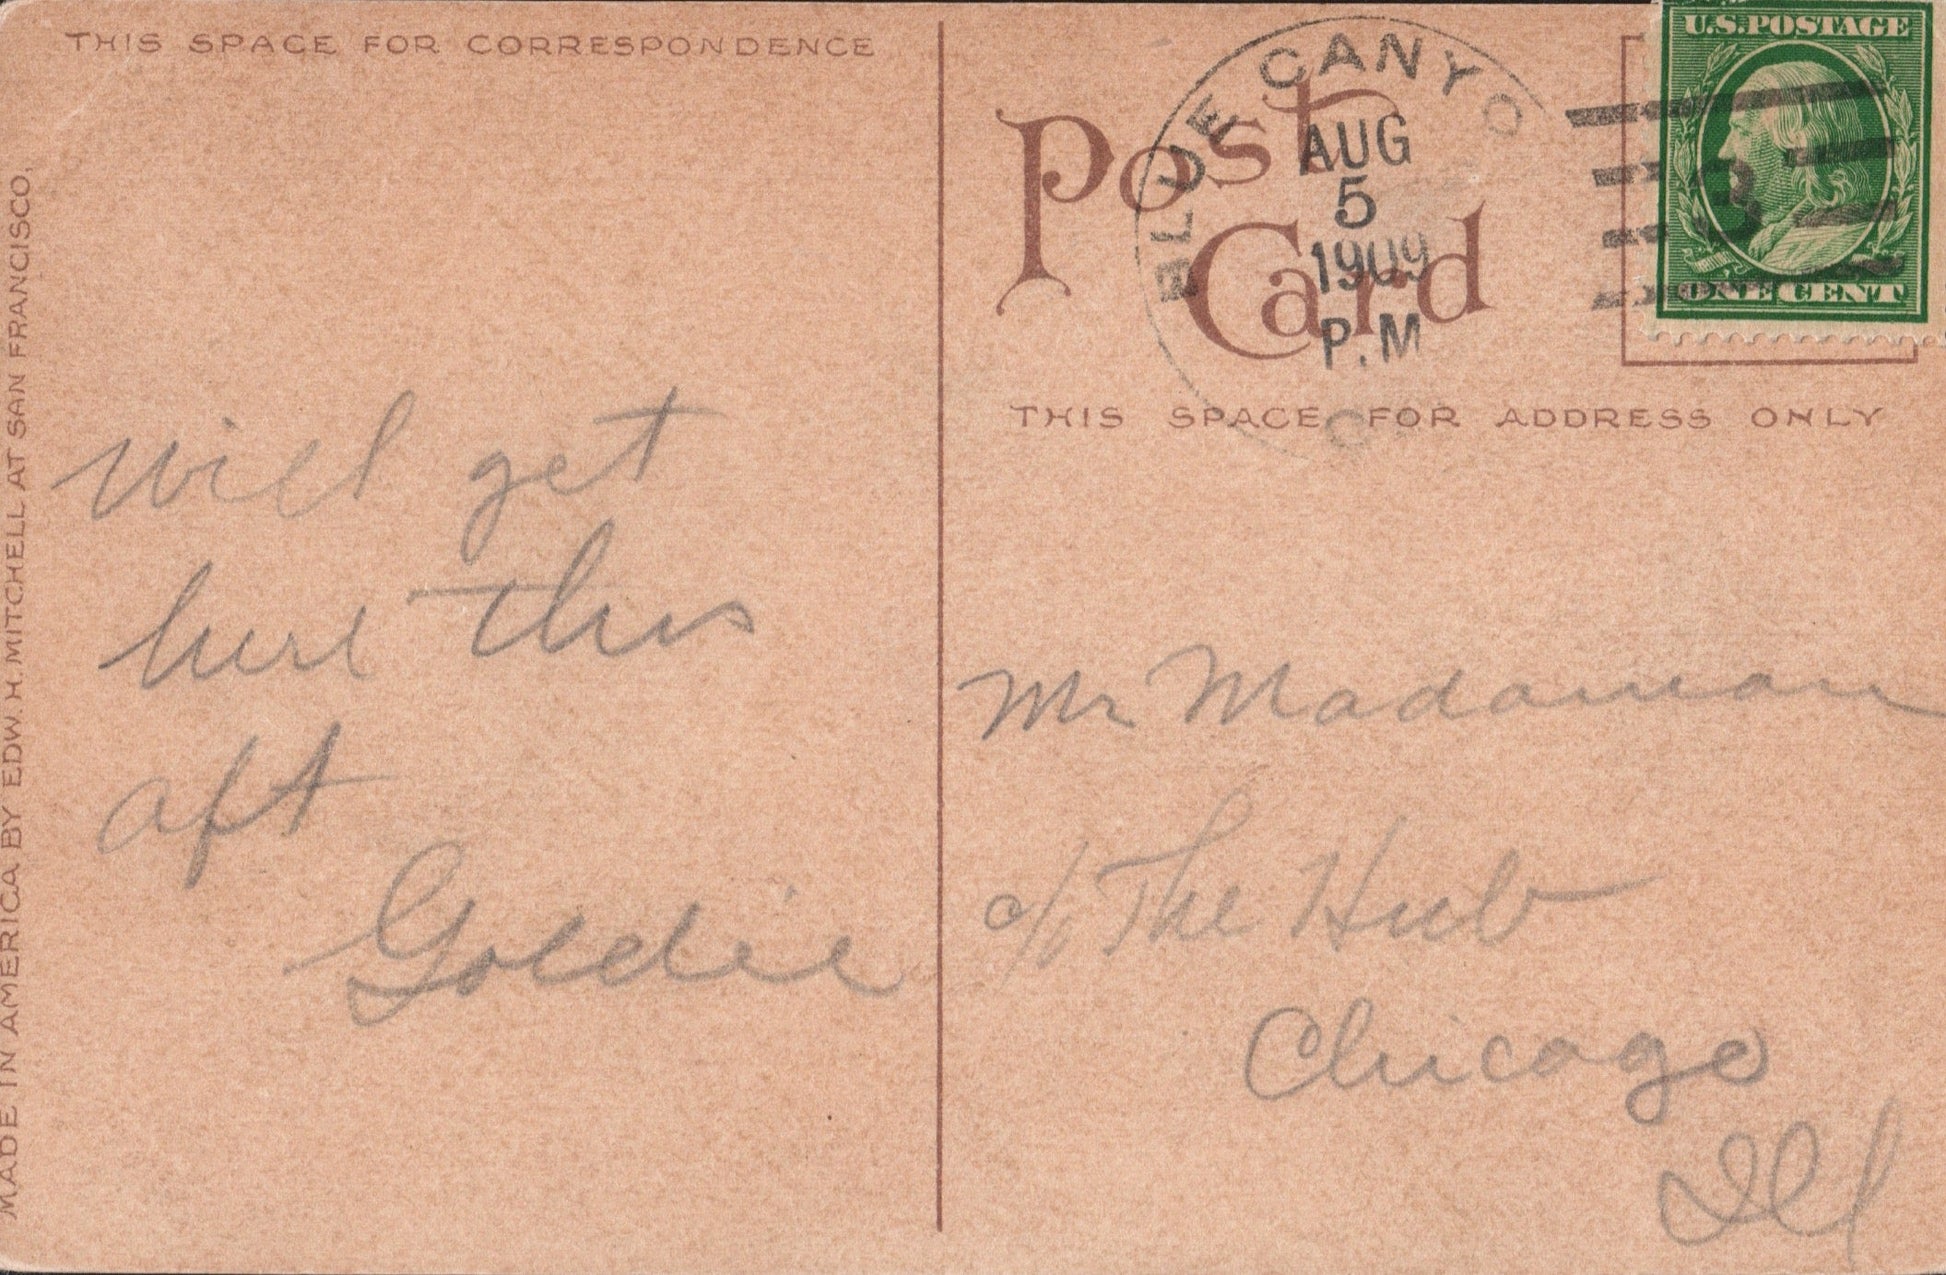 THIS SPACE FOR CORRESPONDENCE
MADE IN AMERICA BY EDW. H. MITCHELL AT SAN FRANCISCO.
will get
here this
aft
Goldie
Post
Card
BLUE CANYO
AUG
5
1909
P.M
U.S. POSTAGE
3
ONE CENT
THIS SPACE FOR ADDRESS ONLY
Mr Madaman
c/o The Hub
Chicago
Ill